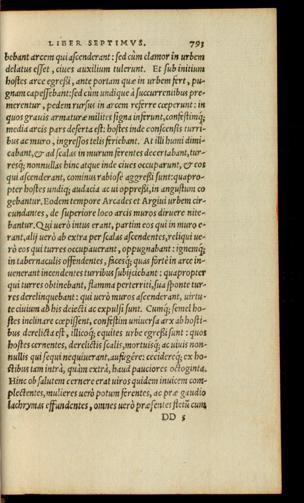 LIBER SEPTIMVS. 793
bebant arcem qui ascenderant: sed cùm clamor in urbem
delatus esset, ciues auxilium tulerunt. Et sub initium
hostes arce egressi, ante portam quæ in urbem fert, pu-
gnam capessebant: sed cùm undique à succurrentibus pre-
merentur, pedem rursus in arcem referre cœperunt: in
quos grauis armaturæ milites signa inferunt, confestimq;
media arcis pars deserta est: hostes inde conscensis turri-
bus ac muro, ingressos telis feriebant. At illi humi dimi-
cabant, & ad scalas in murum ferentes decertabant, tur-
resq; nonnullas hinc atque inde ciues occuparunt, & eos
qui ascenderant, cominus rabiose aggressi sunt: quapro-
pter hostes undiq; audacia ac ui oppressi, in angustum co
gebantur. Eodem tempore Arcades et Argiui urbem cir-
cundantes, de superiore loco arcis muros diruere nite-
bantur. Qui uerò intus erant, partim eos qui in muro e-
rant, alij uerò ab extra per scalas ascendentes, reliqui ue-
rò eos qui turres occupauerant, oppugnabant: ignemq;
in tabernaculis offendentes, facesq; quas fortè in arce in-
uenerant incendentes turribus subijciebant: quapropter
qui turres obtinebant, flamma perterriti, sua sponte tur-
res derelinquebant: qui uerò muros ascenderant, uirtu-
te ciuium ab his deiecti ac expulsi sunt. Cumq; semel ho-
stes inclinare cœpissent, confestim uniuersa arx ab hosti-
bus derelicta est, illicoq; equites urbe egressi sunt: quos
hostes cernentes, derelictis scalis, mortuisq; ac uiuis non-
nullis qui sequi nequiuerant, aufugêre: cecideruntq; ex ho-
stibus tam intrà, quàm extrà, haud pauciores octoginta.
Hinc ob salutem cernere erat uiros quidem inuicem com-
plectentes, mulieres uerò potum ferentes, ac præ gaudio
lachrymas effundentes, omnes uerò præsentes fletũ cum
DD 5